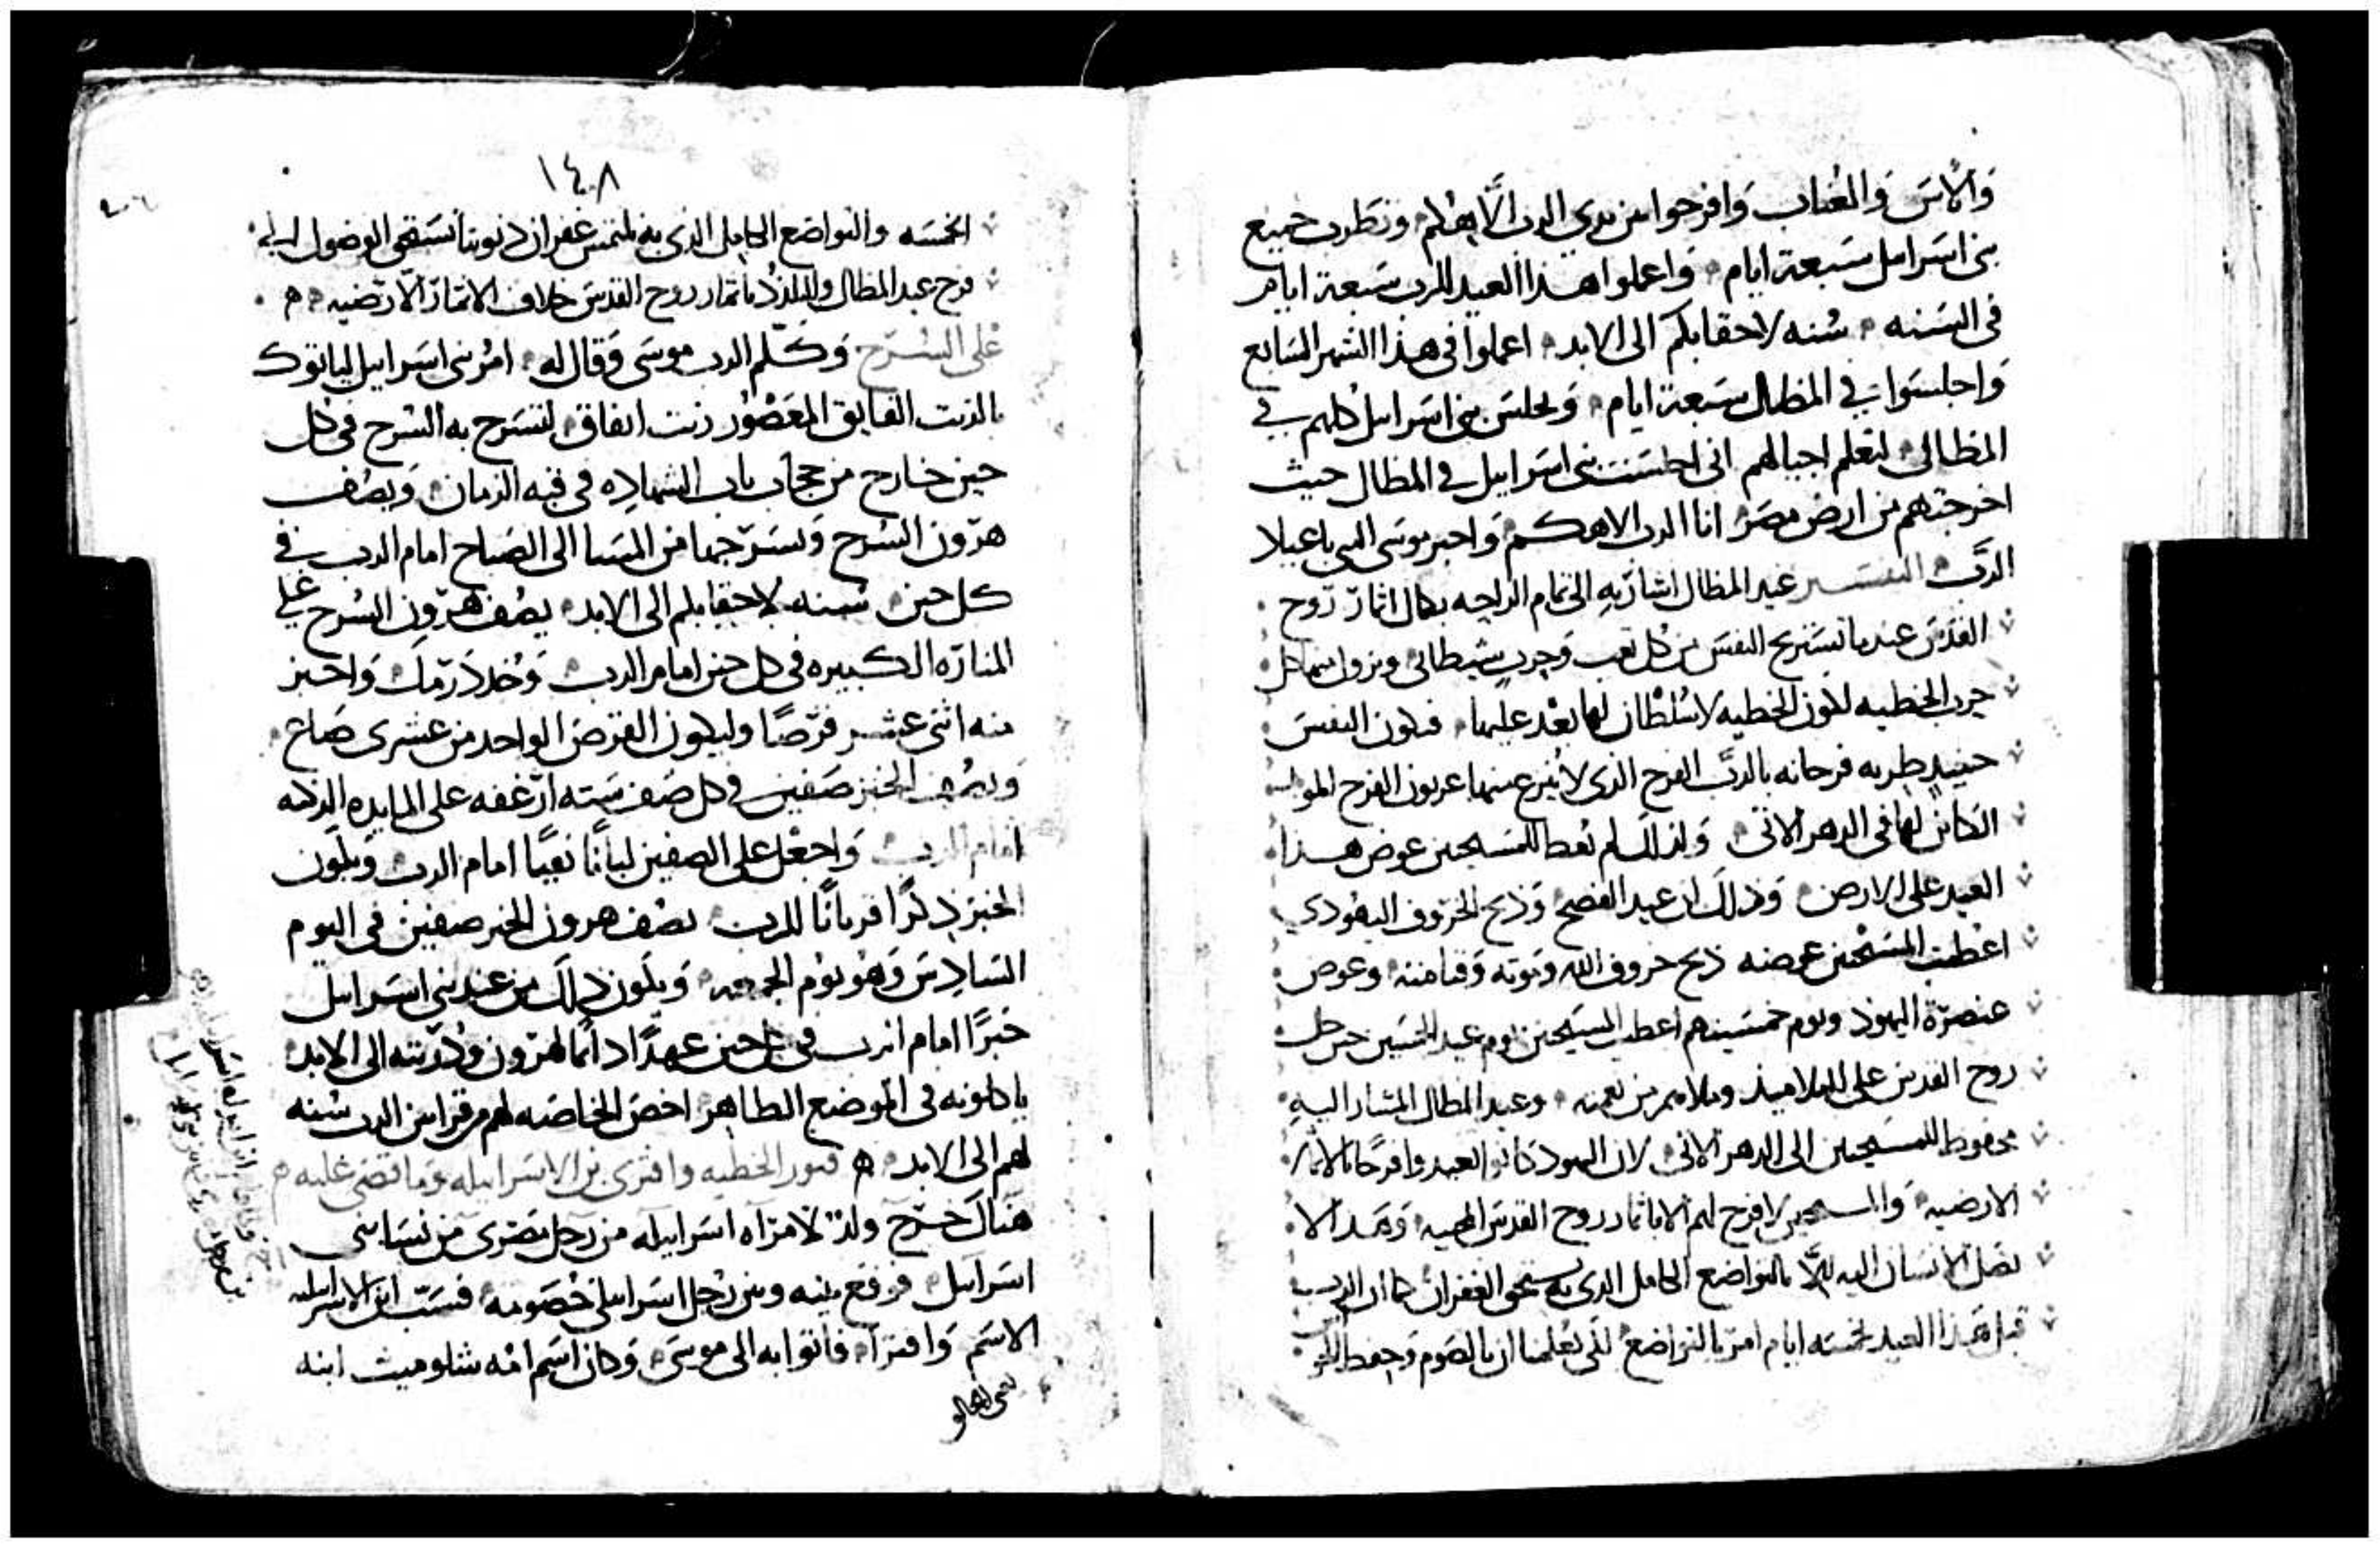 والاس والعناب وافرحوا بين يدي الرب الاهكم وتطرب جميع
بني اسرايل سبعة ايام واعملوا هذا العيد للرب سبعة ايام
في السنه سنه لاحقابكم الى الابد اعملوا في هذا الشهر السابع
واجلسوا في المظال سبعة ايام وتجلس بني اسرايل كلهم في
المظال لتعلم اجيالهم اني اجلست بني اسراييل في المظال حيث
اخرجتهم من ارض مصر انا الرب الاهكم واخبر موسى النبي باعياد
الرب التفسير عيد المظال اشار به الى تمام الراحه بكمال اثمار روح
القدس عندما تستريح النفس من كل تعب وحرب شيطاني ويزول عنها كل
حرب الخطيه لكون الخطيه لا سلطان لها بعد عليها فتكون النفس
حينيذ طربه فرحانه بالرب الفرح الذي لا ينزع عنها عربون الفرح
الكاين لها في الدهر الاتي ولذلك لم يعط للمسيحيين عوض هذا
العيد على الارض وذلك ان عيد الفصح وذبح الخروف اليهودي
اعطيت المسيحيين عوضه ذبح خروف الله وموته وقيامته وعوض
عنصرة اليهود ويوم خمسينهم اعطى المسيحيين يوم عيد الخمسين حين حل
روح القدس على التلاميذ وملاهم من نعمته وعيد المظال المشار اليه
محفوظ للمسيحيين الى الدهر الاتي لان اليهود كانوا العبد وافرحا بالاثمار
الارضيه والمسيحيين لا فرح لهم الا باثمار روح القدس المحييه وهذا لا
يصل الانسان اليه الا بالتواضع الكامل الذي به يستحق الغفران كما ان الرب
قبل هذا العيد بخمسه ايام امر بالتواضع لكي يعلمنا ان بالصوم وحفظ
١٤٨
الخمسه والتواضع الكامل الذي به نلتمس غفران ذنوبنا نستحق الوصول الى
فرح عيد المظال والتلذذ باثمار روح القدس خلاف الاثمار الارضيه
على السرج وكلم الرب موسى وقال له امر بني اسراييل لياتوك
بالزيت الفايق المعصور زيت انفاق لتسرج به السرج في كل
حين خارج من حجاب باب الشهاده في قبه الزمان ويصف
هرون السرج ويسرجها من المسا الى الصباح امام الرب في
كل حين سنه لاحقابكم الى الابد يصف هرون السرج على
المناره الكبيره في كل حين امام الرب وخذ درمك واخبز
منه اثنى عشر قرصا وليكون القرص الواحد من عشري صاع
ويصف الخبز صفين في كل صف سته ارغفه على المايده الزكيه
امام الرب واجعل على الصفين لبانا نقيا امام الرب ويكون
الخبز ذكرا قربانا للرب يصف هرون الخبز صفين في اليوم
السادس وهو يوم الجمعه ويكون ذلك من عند بني اسراييل
خبزا امام الرب في كل حين عهدا دايما لهرون وذريته الى الابد
ياكلونه في الموضع الطاهر اخص الخاصه لهم من قرابين الرب سنه
لهم الى الابد الخطيه وافترى بن الاسراييليه وما قضى عليه
هناك خرج ولد لامراه اسراييليه من رجل مصري من نسا بني
اسراييل فوقع بينه وبين رجل اسراييلي خصومه فسب ابن الاسراييليه
الاسم وافترا فاتوا به الى موسى وكان اسم امه شلوميث ابنه